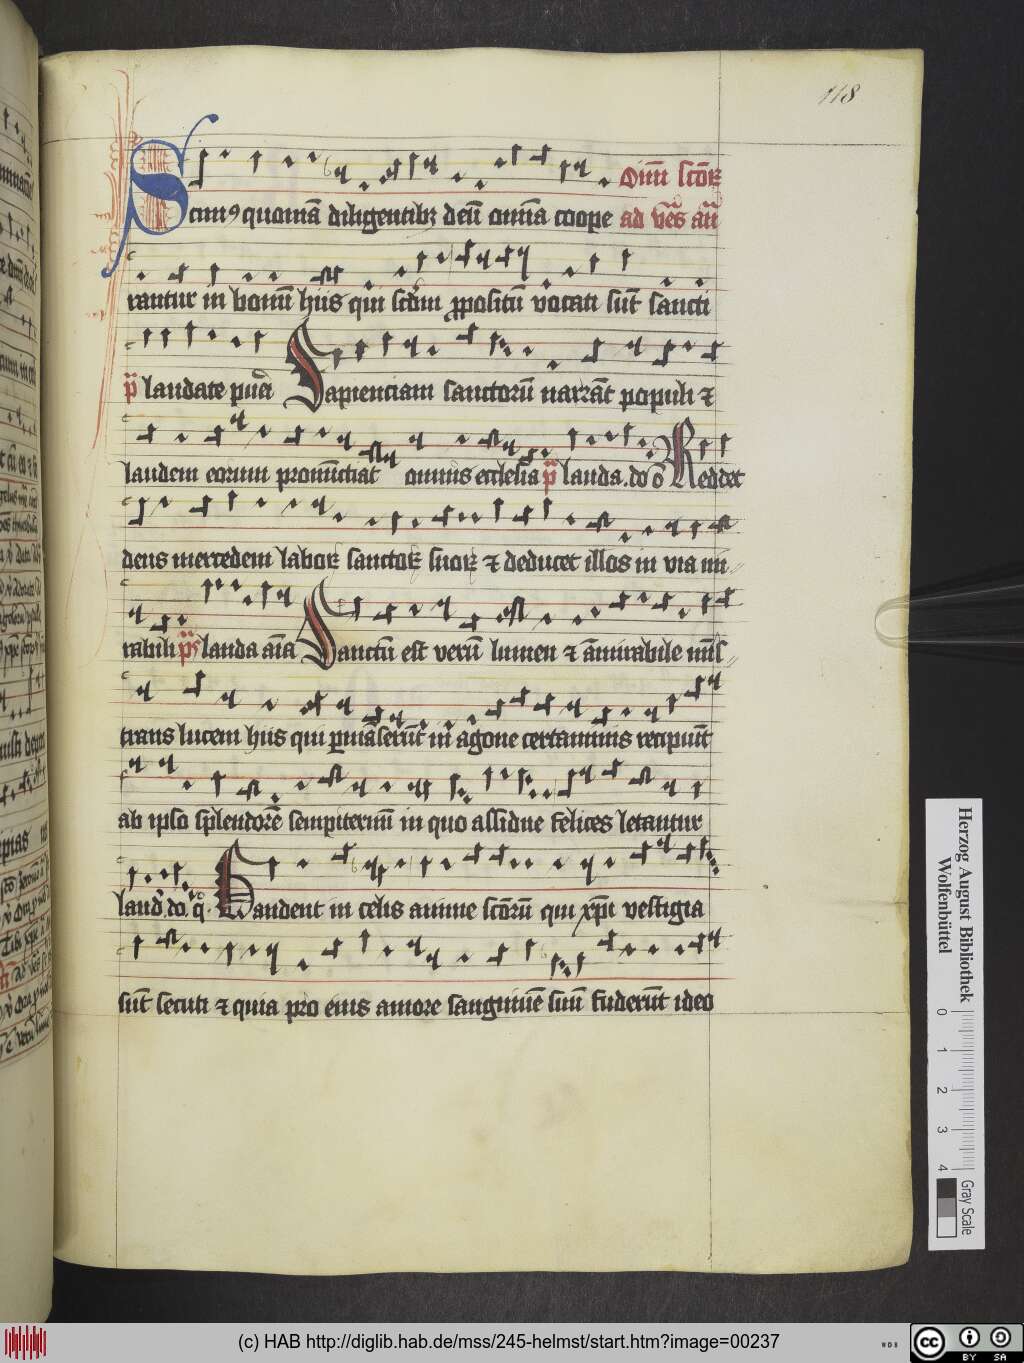 118
Om̅ scōꝝ
Scimꝰ quoniā diligentibꝫ deū om̅ia coope ad ve᷒s an̅
rantur in bonū hiis qui scd̅m ꝓpositū vocati sūt sancti
p̅ laudate pueri Sapienciam sanctorū narrāt populi ⁊
laudem eorum pronūtiat omnis ecclesia p̅ lauda. do o̅ Reddet
deus mercedem laboꝝ sanctoꝝ suoꝝ ⁊ deducet illos in via mi⸗
rabili p̅s lauda aīa Sanctū est verū lumen ⁊ am̅irabile mīs⸗
trans lucem hiis qui ꝑmāserūt in agone certaminis recipiūt
ab ipso splendorē sempiternū in quo assidue felices letantur
laud̕. do. q̅. Gaudent in celis anime scōrū qui xp̅i vestigia
sūt secuti ⁊ quia pro eius amore sanguinē suū fuderūt ideo
Herzog August Bibliothek
Wolfenbüttel
0 1 2 3 4
Gray Scale
(c) HAB http://diglib.hab.de/mss/245-helmst/start.htm?image=00237
WDB
cc BY SA